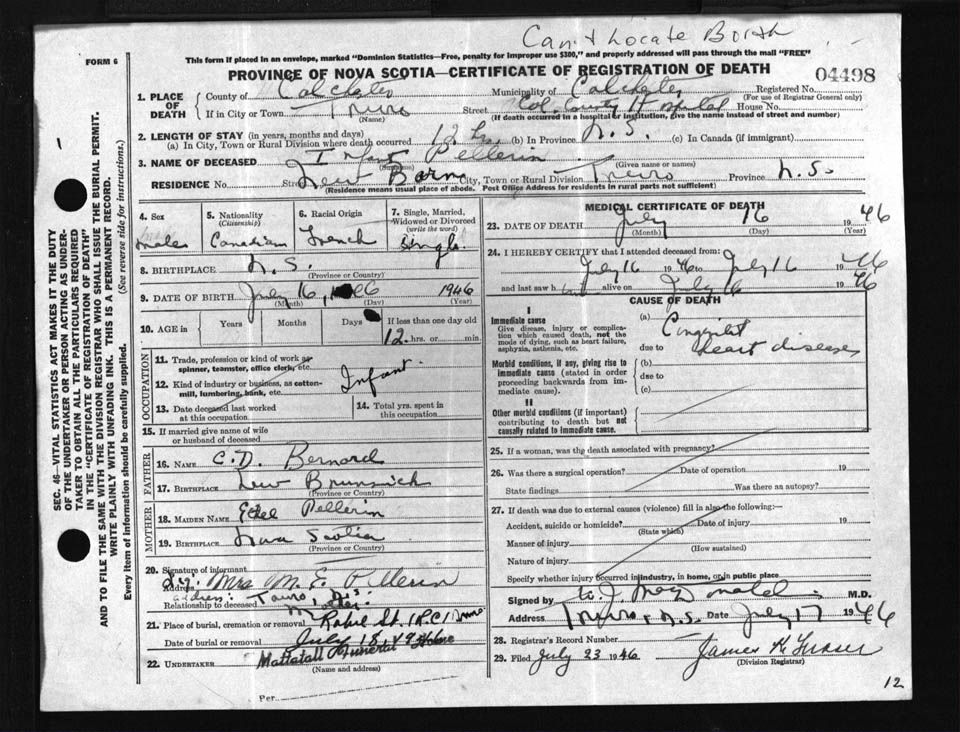 Can't Locate Birth
FORM 6
This form if placed in an envelope, marked "Dominion Statistics—Free, penalty for improper use $300," and properly addressed will pass through the mail "FREE"
PROVINCE OF NOVA SCOTIA—CERTIFICATE OF REGISTRATION OF DEATH
04498
1. PLACE OF DEATH
County of Colchester Municipality of Colchester Registered No.
(For use of Registrar General only)
If in City or Town Truro Street Col. County Hospital House No.
(Name) (If death occurred in a hospital or institution, give the name instead of street and number)
2. LENGTH OF STAY (in years, months and days)
(a) In City, Town or Rural Division where death occurred 12 hrs (b) In Province N.S. (c) In Canada (if immigrant)
3. NAME OF DECEASED Infant Pellerin
(Surname) (Given name or names)
RESIDENCE No. Street New Born City, Town or Rural Division Truro Province N.S.
(Residence means usual place of abode. Post Office Address for residents in rural parts not sufficient)
4. Sex
Male
5. Nationality
(Citizenship)
Canadian
6. Racial Origin
French
7. Single, Married, Widowed or Divorced
(write the word)
Single
8. BIRTHPLACE N.S.
(Province or Country)
9. DATE OF BIRTH July 16, 1946
(Month) (Day) (Year)
10. AGE in
Years
Months
Days
If less than one day old
12 hrs. or min.
OCCUPATION
11. Trade, profession or kind of work as spinner, teamster, office clerk, etc.
12. Kind of industry or business, as cotton-mill, lumbering, bank, etc.
Infant
13. Date deceased last worked at this occupation
14. Total yrs. spent in this occupation
15. If married give name of wife or husband of deceased
FATHER
16. NAME C.D. Bernard
17. BIRTHPLACE New Brunswick
(Province or Country)
MOTHER
18. MAIDEN NAME Pellerin
19. BIRTHPLACE Nova Scotia
(Province or Country)
20. Signature of informant
Mrs M. E. Pellerin
Address: Truro, N.S.
Relationship to deceased Mother
21. Place of burial, cremation or removal St. (R.C.) Truro
Date of burial or removal July 18
22. UNDERTAKER Mattatall Funeral Home
(Name and address)
Per
MEDICAL CERTIFICATE OF DEATH
23. DATE OF DEATH July 16 1946
(Month) (Day) (Year)
24. I HEREBY CERTIFY that I attended deceased from:
July 16 1946 to July 16 1946
and last saw h alive on July 16 1946
CAUSE OF DEATH
I
Immediate cause
Give disease, injury or complication which caused death, not the mode of dying, such as heart failure, asphyxia, asthenia, etc.
(a) Congenital
due to heart disease
Morbid conditions, if any, giving rise to immediate cause (stated in order proceeding backwards from immediate cause).
(b)
due to
(c)
II
Other morbid conditions (if important) contributing to death but not causally related to immediate cause.
25. If a woman, was the death associated with pregnancy?
26. Was there a surgical operation? Date of operation 19
State findings Was there an autopsy?
27. If death was due to external causes (violence) fill in also the following:—
Accident, suicide or homicide? Date of injury 19
(State which)
Manner of injury
(How sustained)
Nature of injury
Specify whether injury occurred in industry, in home, or in public place
Signed by M.D.
Address Truro, N.S. Date July 17 1946
28. Registrar's Record Number
29. Filed July 23 1946 James K Fraser
(Division Registrar)
12
SEC. 46—VITAL STATISTICS ACT MAKES IT THE DUTY OF THE UNDERTAKER OR PERSON ACTING AS UNDERTAKER TO OBTAIN ALL THE PARTICULARS REQUIRED IN THE "CERTIFICATE OF REGISTRATION OF DEATH" AND TO FILE THE SAME WITH THE DIVISION REGISTRAR WHO SHALL ISSUE THE BURIAL PERMIT.
WRITE PLAINLY WITH UNFADING INK. THIS IS A PERMANENT RECORD.
Every item of information should be carefully supplied. (See reverse side for instructions.)